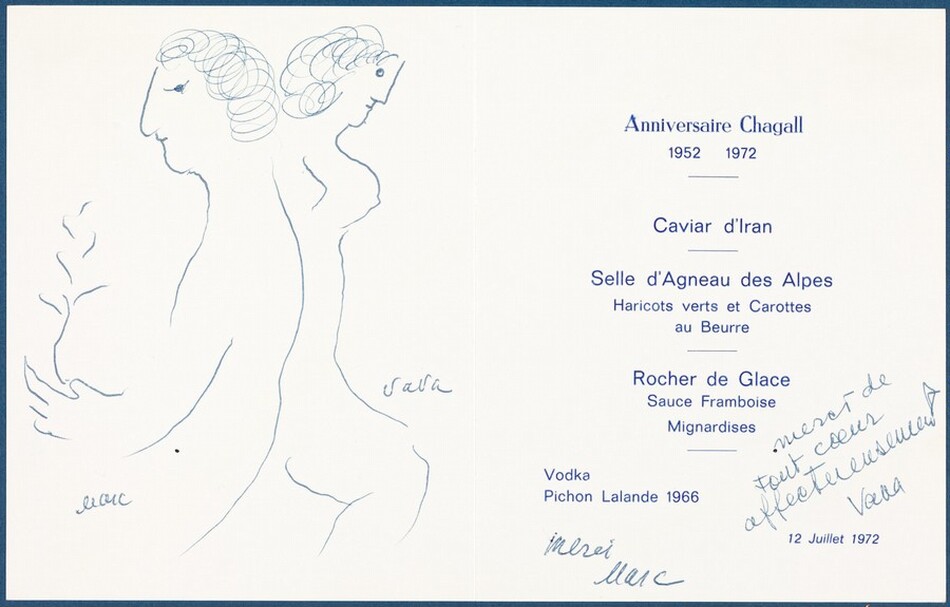 vava
Marc
Anniversaire Chagall
1952 1972
Caviar d'Iran
Selle d'Agneau des Alpes
Haricots verts et Carottes
au Beurre
Rocher de Glace
Sauce Framboise
Mignardises
Vodka
Pichon Lalande 1966
merci de
tout cœur
affectueusement
Vava
12 Juillet 1972
merci
Marc